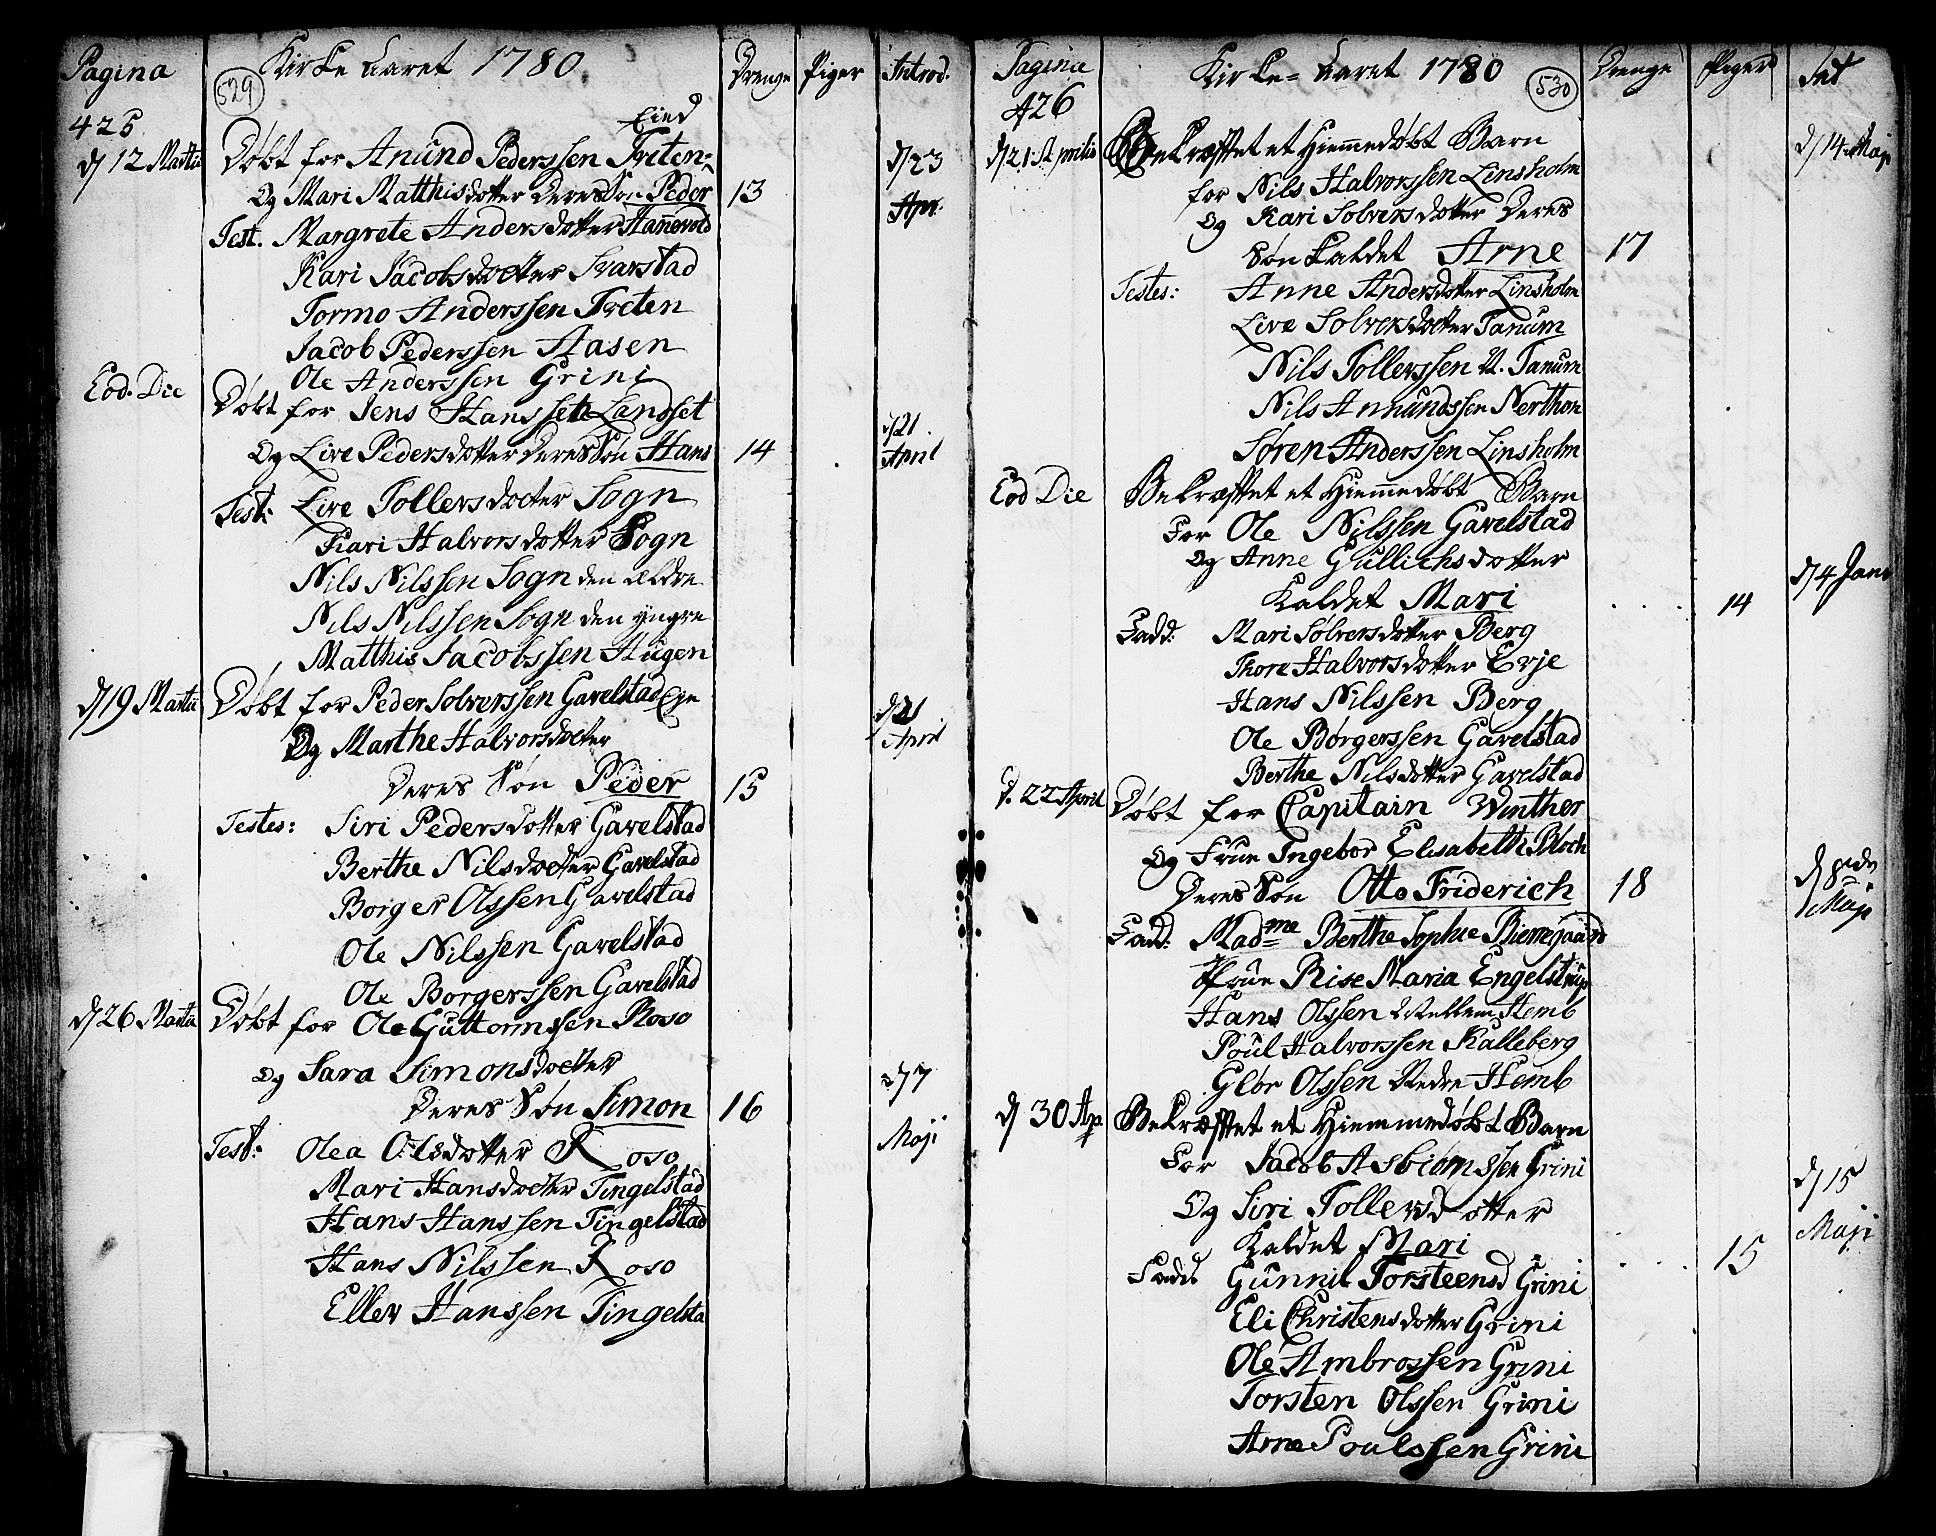 Pagina
425
529
Kirke Aaret 1780
Drenge
Piger
Introd.
d/12 Martii
Eied
Døbt for Anund Pederssen Treten
Og Mari Matthisdotter Deres Søn Peder
13
d/23
Apr.
Test. Margrete Andersdotter Hannevold
Kari Jacobsdotter Svarstad
Tormo Anderssen Treten
Jacob Pederssen Aasen
Ole Anderssen Grini
Eod. Die
Døbt for Jens Hanssen Landset
Og Live Pedersdotter Deres Søn Hans
14
d/21
April
Test: Live Tollersdotter Sogn
Kari Halvorsdotter Sogn
Nils Nilssen Sogn den Ældre
Nils Nilssen Sogn den yngre
Matthis Jacobssen Haugen
d/19 Martii
Døbt for Peder Solverssen Gavelstad Eje
Og Marthe Halvorsdotter
Deres Søn Peder
15
d/21
April
Testes: Siri Pedersdotter Gavelstad
Berthe Nilsdotter Gavelstad
Borger Olssen Gavelstad
Ole Nilssen Gavelstad
Ole Borgerssen Gavelstad
d/26 Martii
Døbt for Ole Guttormssen Roso
og Sara Simonsdotter
Deres Søn Simon
16
d/7
Maji
Test: Olea Olsdotter Roso
Mari Hansdotter Tingelstad
Hans Hanssen Tingelstad
Hans Nilssen Roso
Ellev Hanssen Tingelsta
Pagina
426
Kirke-Aaret 1780
530
Drenge
Piger
Int
d/21 Aprilis
Bekræfftet et Hiemmedøbt Barn
for Nils Halvorssen Linsholm
Og Kari Solversdotter Deres
Søn kaldet Arne
17
d/14 Maji
Testes: Anne Andersdotter Linsholm
Live Solversdotter Tanum
Nils Tollerssen N. Tanum
Nils Amundssen Nerthon
Søren Anderssen Linsholm
Eod Die
Bekræfftet et Hiemmedøbt Barn
For Ole Nilssen Gavelstad
Og Anne Gullichsdotter
Kaldet Mari
14
d/4 Jun
Fadd: Mari Solversdotter Berg
Thore Halvorsdotter Evje
Hans Nilssen Berg
Ole Børgerssen Gavelstad
Berthe Nilsdotter Gavelstad
d. 22 April
Døbt for Capitain Winther
Og Frue Ingebor Elisabeth Bloch
Deres Søn Otto Friderich
18
d/8de
Maji
Fadd: Madme Berthe Sophie Bierregaard
Frue Rise Maria Engelstrup
Hans Olssen Mellem Hemb
Poul Halvorssen Kalleberg
Glør Olssen Nedre Hemb
d/30 Ap
Bekræfftet et Hiemmedøbt Barn
For Jacob Asbiornssen Grini
Og Siri Tollersdotter
Kaldet Mari
15
d/15
Maji
Fadd. Gunnil Torsteensd Grini
Eli Christensdotter Grini
Ole Ambrossen Grini
Torsten Olssen Grini
Arne Poulssen Grini